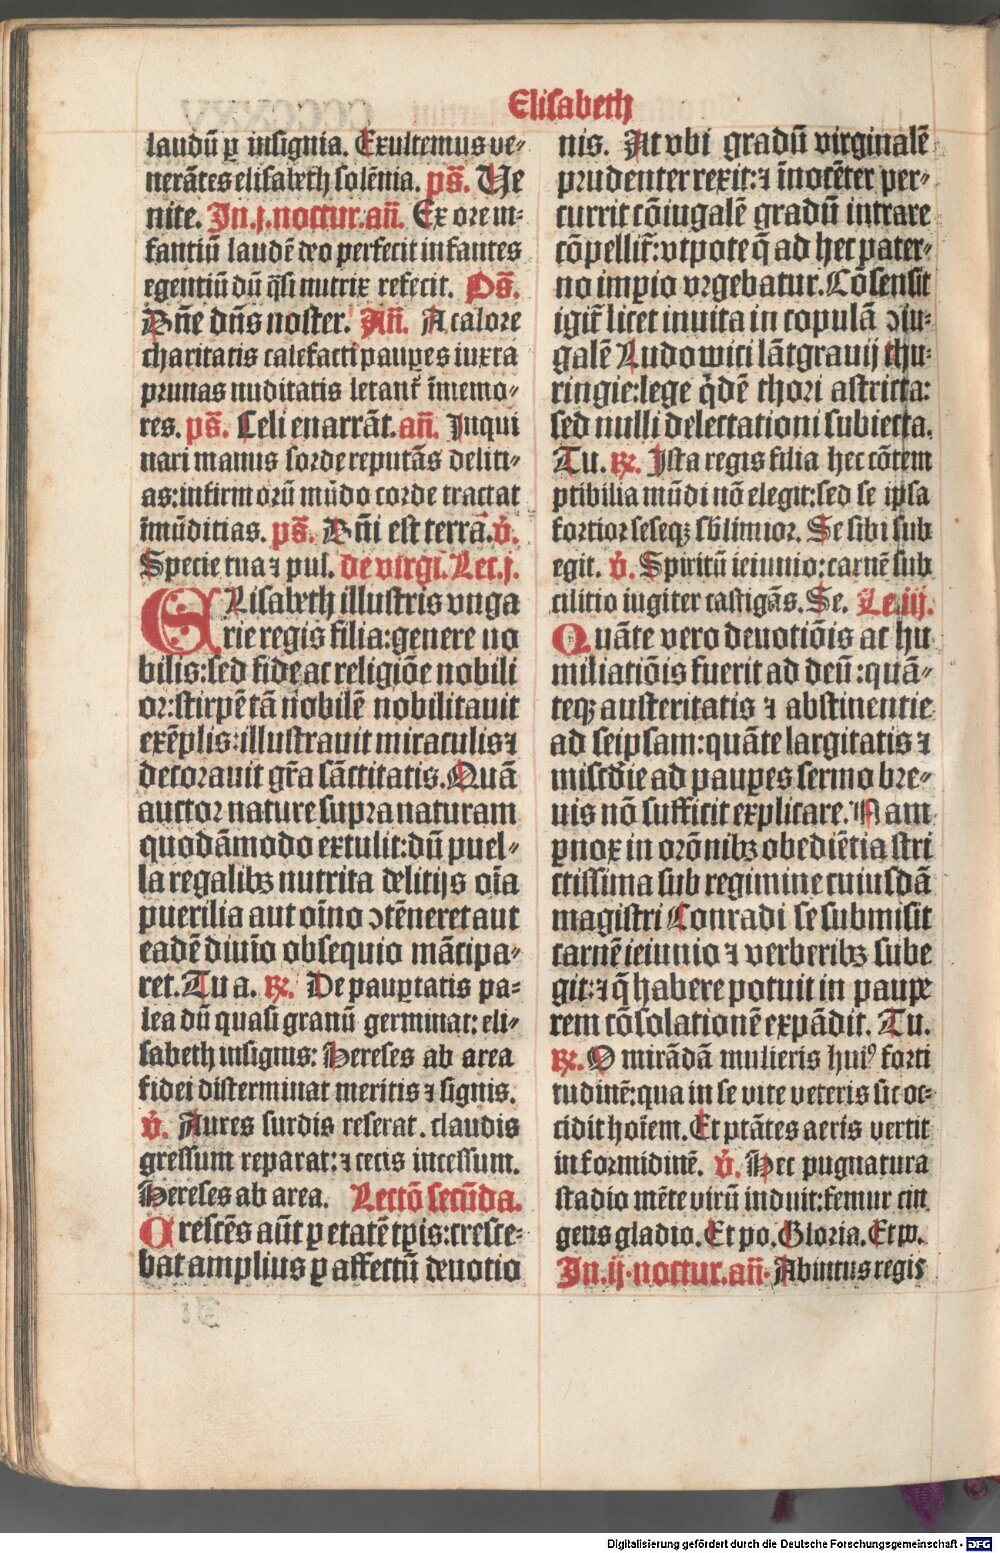 Elisabeth
laudū ꝑ insignia. Exultemus ve⸗
nerātes elisabeth solēnia. ps̄. Ve
nite. In.j.noctur.an̄. Ex ore in⸗
fantiū laudē deo perfecit infantes
egentiū dū q̄si nutrix refecit. Ps̄.
Dn̄e dn̄s noster. An̄. A calore
charitatis calefacti pauꝑes iuxta
prunas nuditatis letant᷑ īmemo⸗
res. ps̄. Celi enarrāt. an̄. Inqui
nari manus sorde reputās deliti⸗
as: infirmorū mūdo corde tractat
īmūditias. ps̄. Dn̄i est terra. v̓.
Specie tua ⁊ pul. de virgi. Lec.j.
ELisabeth illustris vnga
rie regis filia: genere no
bilis: sed fide ac religiōe nobili
or: stirpē tā nobilē nobilitauit
exēplis: illustrauit miraculis ⁊
decorauit gr̄a sāctitatis. Quā
auctor nature supra naturam
quodāmodo extulit: dū puel⸗
la regalibꝫ nutrita delitijs oīa
puerilia aut oīno ↄtēneret aut
eadē diuīo obsequio mācipa⸗
ret. Tu a. ℞. De pauꝑtatis pa⸗
lea dū quasi granū germinat: eli⸗
sabeth insignis: Hereses ab area
fidei disterminat meritis ⁊ signis.
v̓. Aures surdis reserat. claudis
gressum reparat: ⁊ cecis incessum.
Hereses ab area. Lectō secūda.
Crescēs aūt ꝑ etatē tꝑis: cresce⸗
bat amplius ꝑ affectū deuotio
nis. At vbi gradū virginalē
prudenter rexit: ⁊ īnocēter per⸗
currit cōiugalē gradū intrare
cōpellit᷑: vtpote q̄ ad hec pater⸗
no imꝑio vrgebatur. Cōsensit
igit᷑ licet inuita in copulā ↄiu⸗
galē Ludowici lātgrauij thu⸗
ringie: lege q̇dē thori astricta:
sed nulli delectationi subiecta.
Tu. ℞. Ista regis filia hec cōtem
ptibilia mūdi nō elegit: sed se ipsa
fortior seseqꝫ sb̄limior. Se sibi sub
egit. v̓. Spiritū ieiunio: carnē sub
cilitio iugiter castigās. Se. Le.iij.
Quāte vero deuotiōis ac hu
miliatiōis fuerit ad deū: quā⸗
teqꝫ austeritatis ⁊ abstinentie
ad seipsam: quāte largitatis ⁊
mīscd̄ie ad pauꝑes sermo bre⸗
uis nō sufficit explicare. Nam
ꝑnox in orōnibꝫ obediētia stri
ctissima sub regimine cuiusdā
magistri Conradi se submisit
carnē ieiunio ⁊ verberibꝫ sube
git: ⁊ q̄ habere potuit in pauꝑe
rem cōsolationē expādit. Tu.
℞. O mirādā mulieris huiꝰ forti
tudinē: qua in se vite veteris sic oc⸗
cidit hoīem. Et ptātes aeris vertit
in formidinē. v̓. Hec pugnatura
stadio mēte virū induit: femur cin
gens gladio. Et po. Gloria. Et po.
In.ij.noctur.an̄. Abintus regis
Digitalisierung gefördert durch die Deutsche Forschungsgemeinschaft - DFG